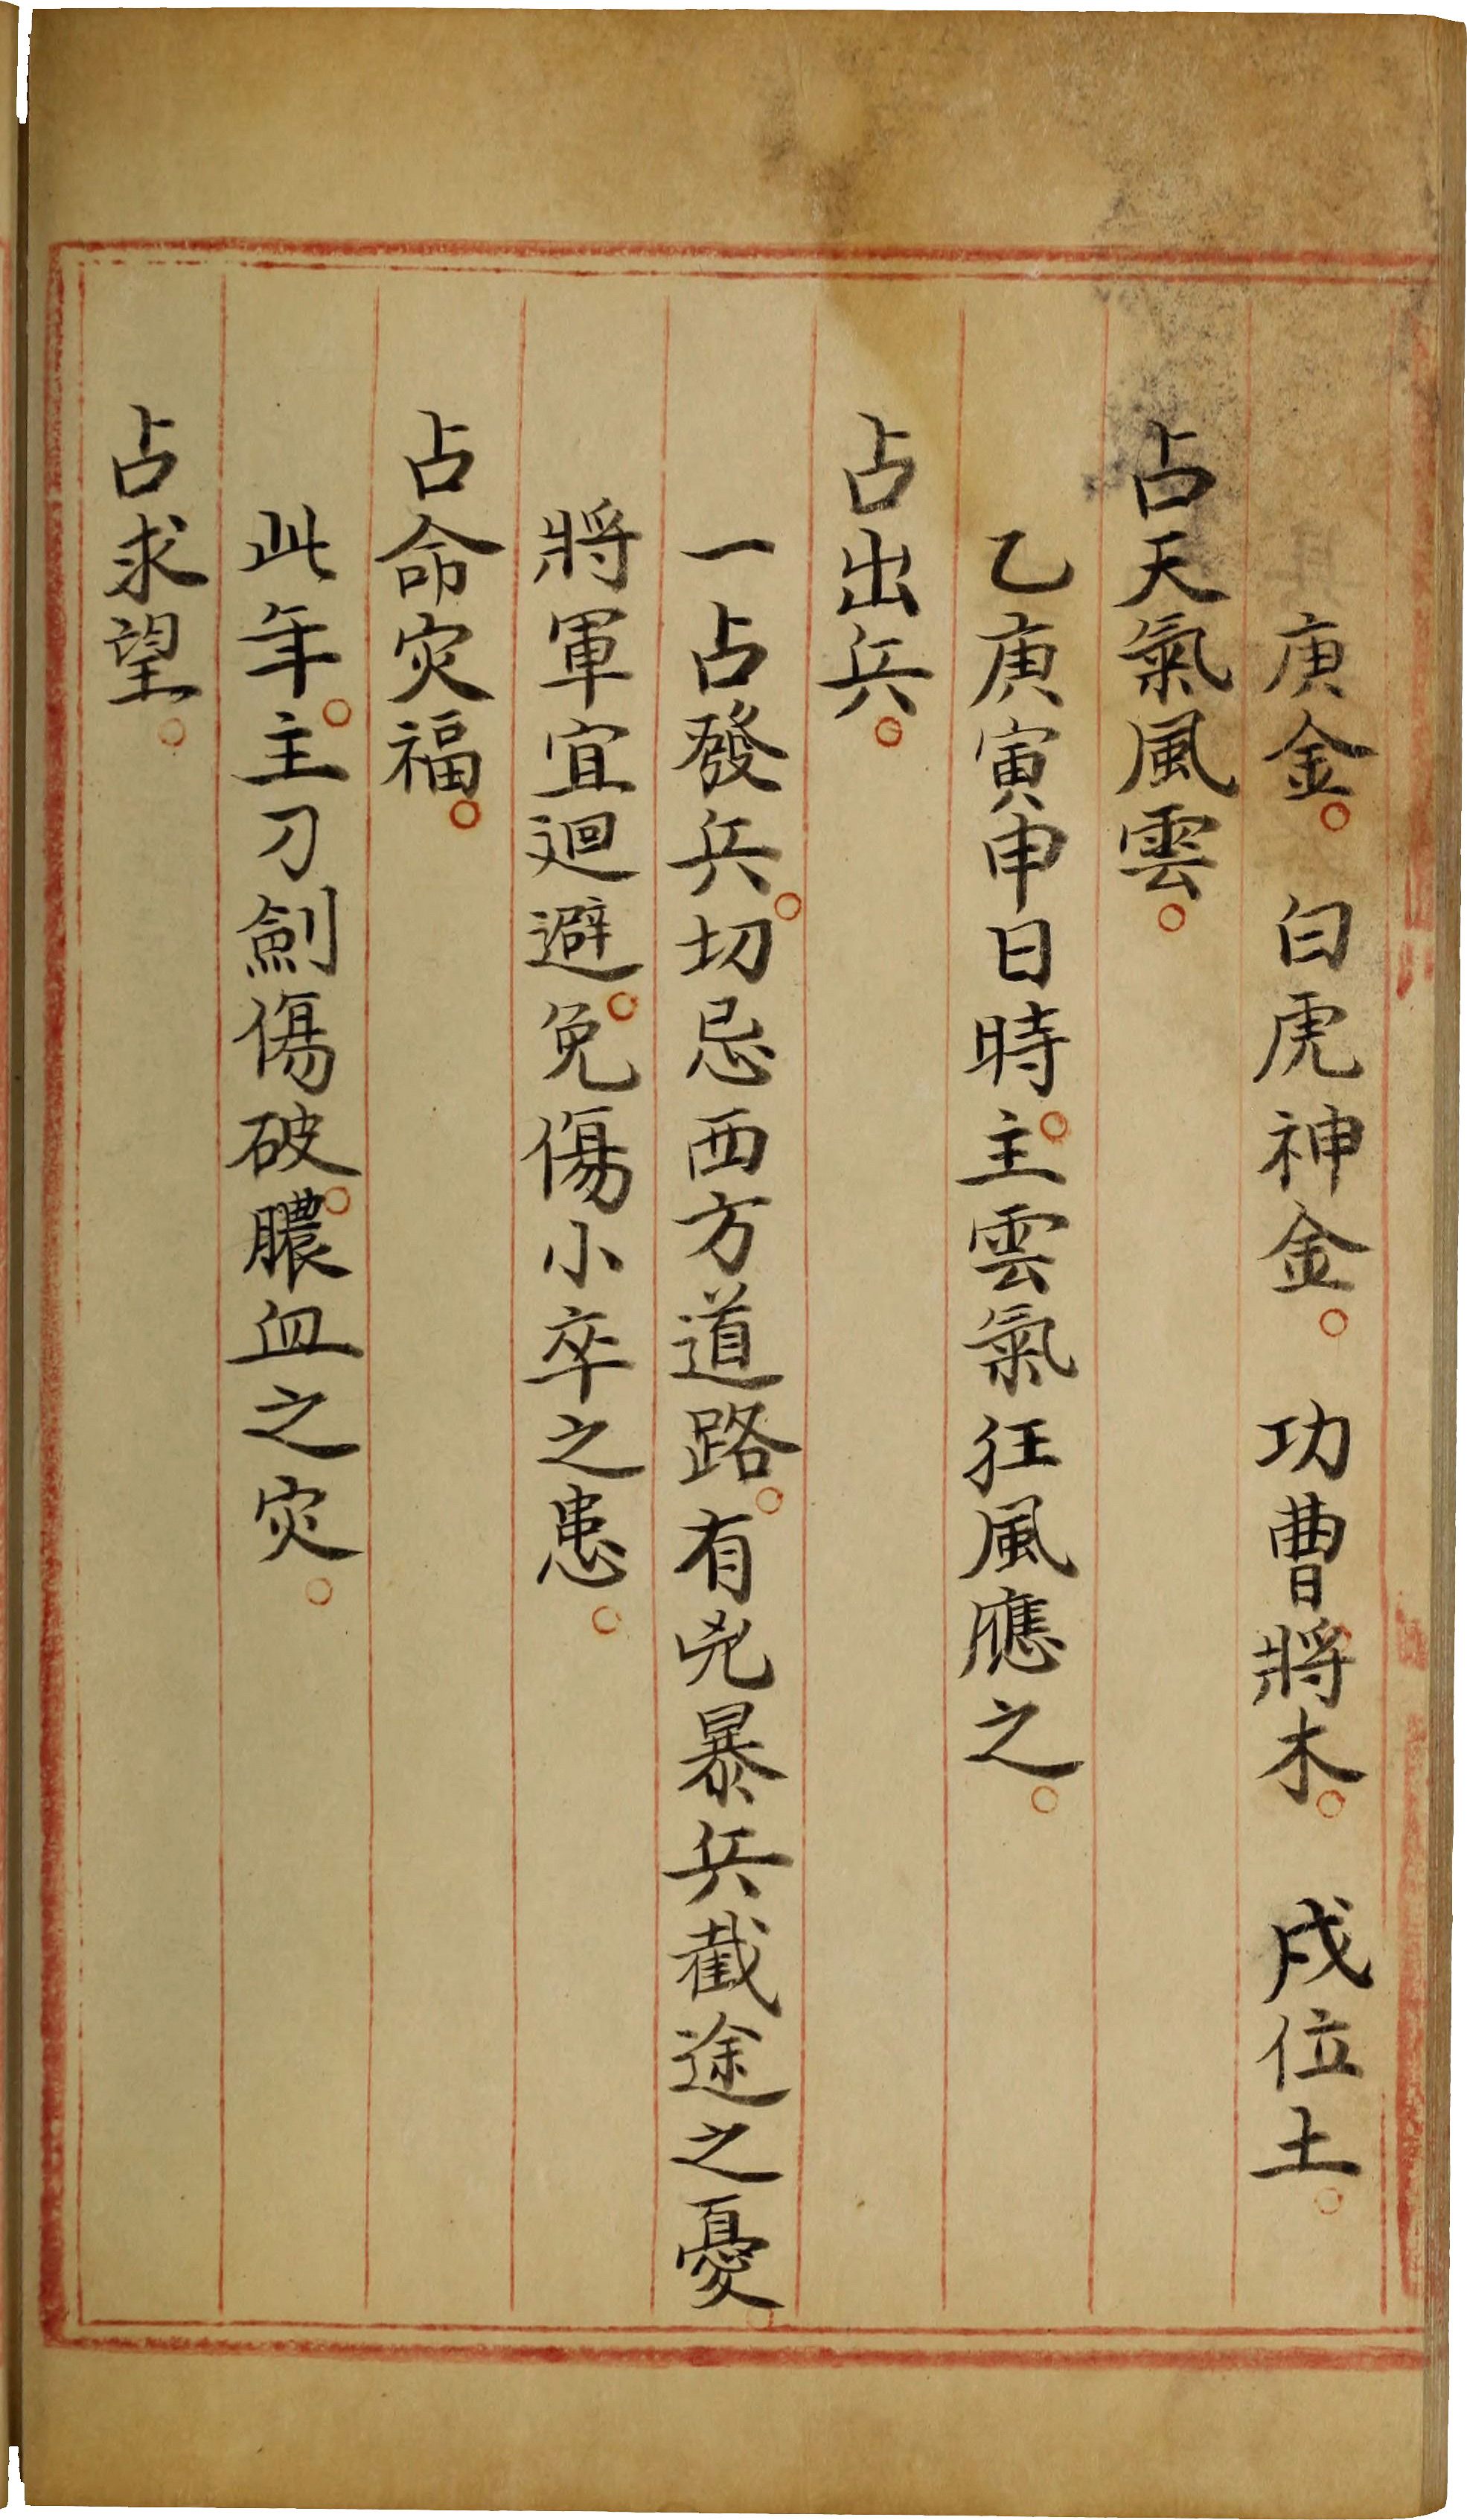 庚金。　白虎神金。　功曹將木。　戌位土。
占天氣風雲。
乙庚寅申日時。主雲氣狂風應之。
占出兵。
一占發兵。切忌西方道路。有兇暴兵截途之憂。
將軍宜迴避。免傷小卒之患。
占命灾福。
此年。主刀劍傷破。膿血之灾。
占求望。